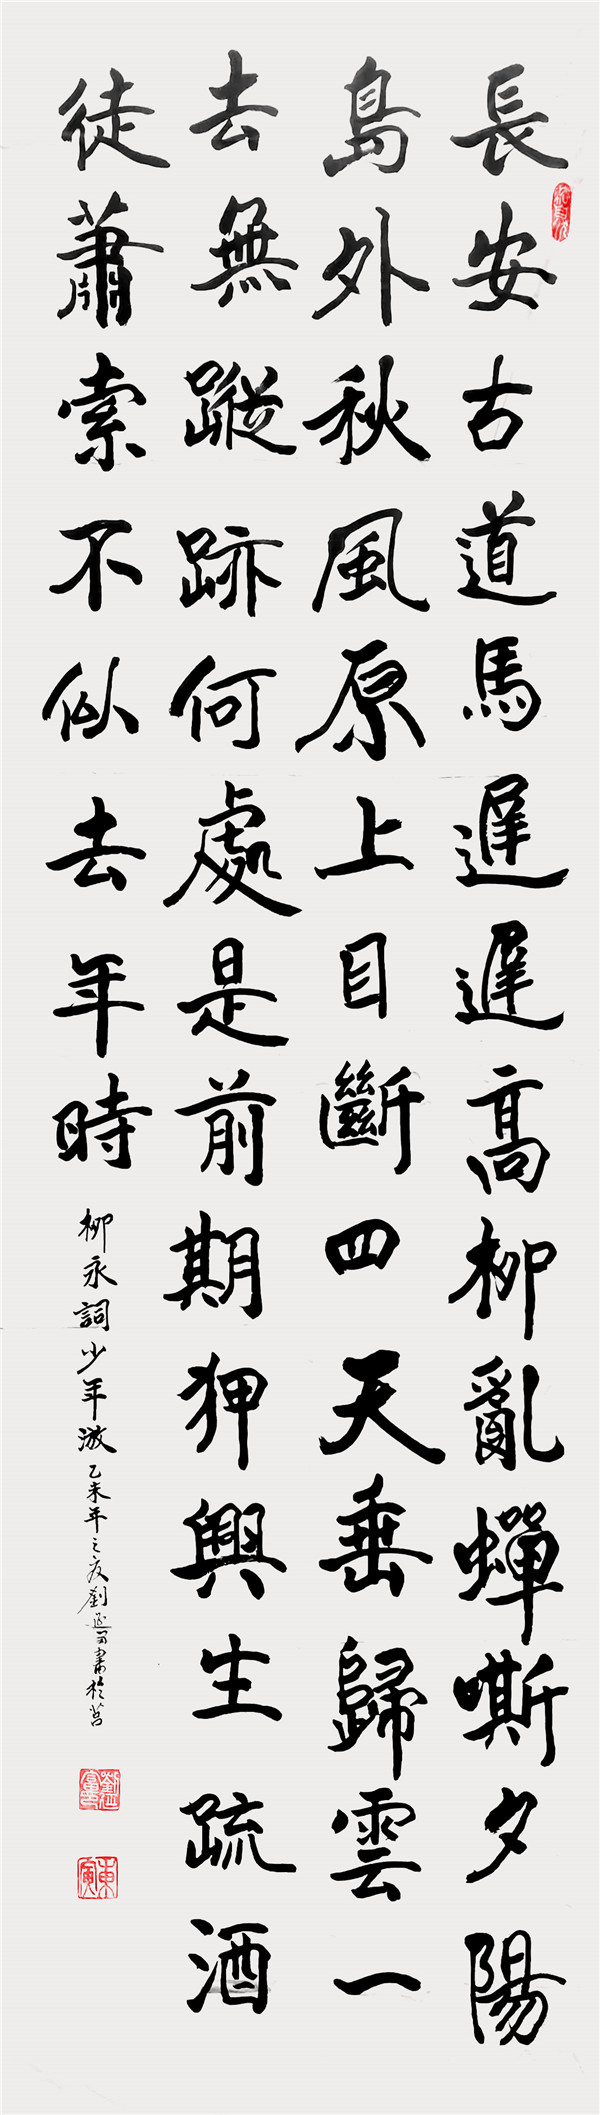 長安古道馬遲遲高柳亂蟬嘶夕陽
島外秋風原上目斷四天垂歸雲一
去無蹤跡何處是前期狎興生疏酒
徒蕭索不似去年時
柳永詞少年游
乙未年之夏劉書於莒